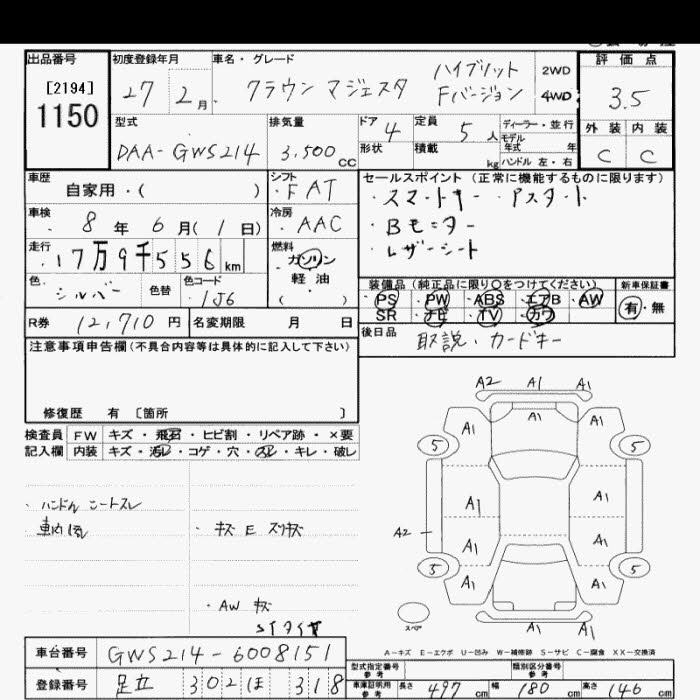 出品番号 初度登録年月 車名・グレード 評価点
[2194] 27 2月 クラウン マジェスタ ハイブリット 2WD
1150 Fバージョン 4WD 3.5
型式 排気量 ドア 4 定員 5人 ディーラー・並行 外装 内装
DAA-GWS214 3,500cc 形状 積載 kg モデル年式 年 C C
ハンドル 左・右
車歴 シフト セールスポイント (正常に機能するものに限ります)
自家用・( ) ・FAT ・スマートキー ・Pスタート
車検 冷房 ・Bモニター
8年6月(1日) ・AAC ・レザーシート
走行 燃料
17万9千556km ガソリン
色 色替 色コード 軽油 装備品(純正品に限り○をつけてください) 新車保証書
シルバー ・1J6 ( ) ・PS ・PW ・ABS ・エアB ・AW 有・無
SR ・ナビ ・TV ・カワ
R券 12,710円 名変期限 月 日 後日品 取説・カードキー
注意事項申告欄(不具合内容等は具体的に記入して下さい)
修復歴 有 〔箇所 〕
検査員 FW キズ・飛石・ヒビ割・リペア跡・×要
記入欄 内装 キズ・汚レ・コゲ・穴・スレ・キレ・破レ
A2 A1 A1
A1 A1 A1
5 5
・ハンドル シートスレ
A1 A1
・キズ E スリキズ
A2 A1 A1
5 5
A1 A1
・AW キズ
スペア A1 A1
A-キズ E-エクボ U-凹み W-補修跡 S-サビ C-腐食 XX-交換済
車台番号 GWS214-6008151
型式指定番号 参考 類別区分番号 参考
登録番号 足立 302 ほ 318 車庫証明用参考 長さ 497cm 幅 180cm 高さ 146cm